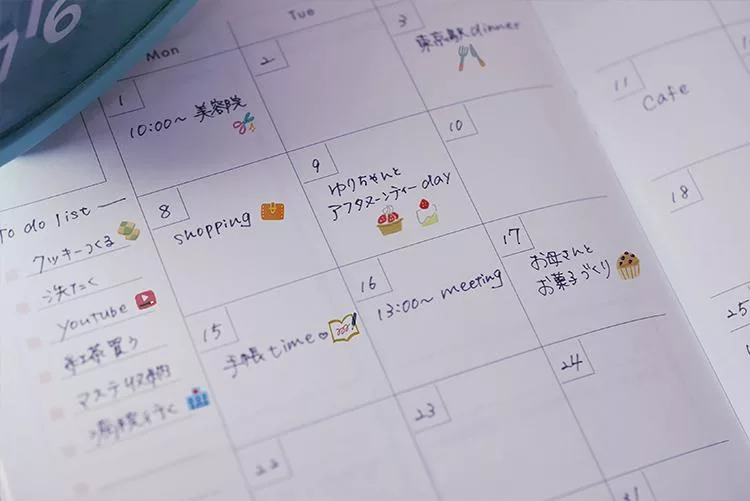 Mon
Tue
1
10:00〜 美容院
2
3
東京駅 dinner
8
shopping
9
ゆりちゃんと
アフタヌーンティー day
10
11
Cafe
15
手帳time♡
16
13:00〜 meeting
17
お母さんと
お菓子づくり
18
22
23
24
25
To do list
クッキーつくる
洗たく
Youtube
紅茶買う
マステ収納
病院行く